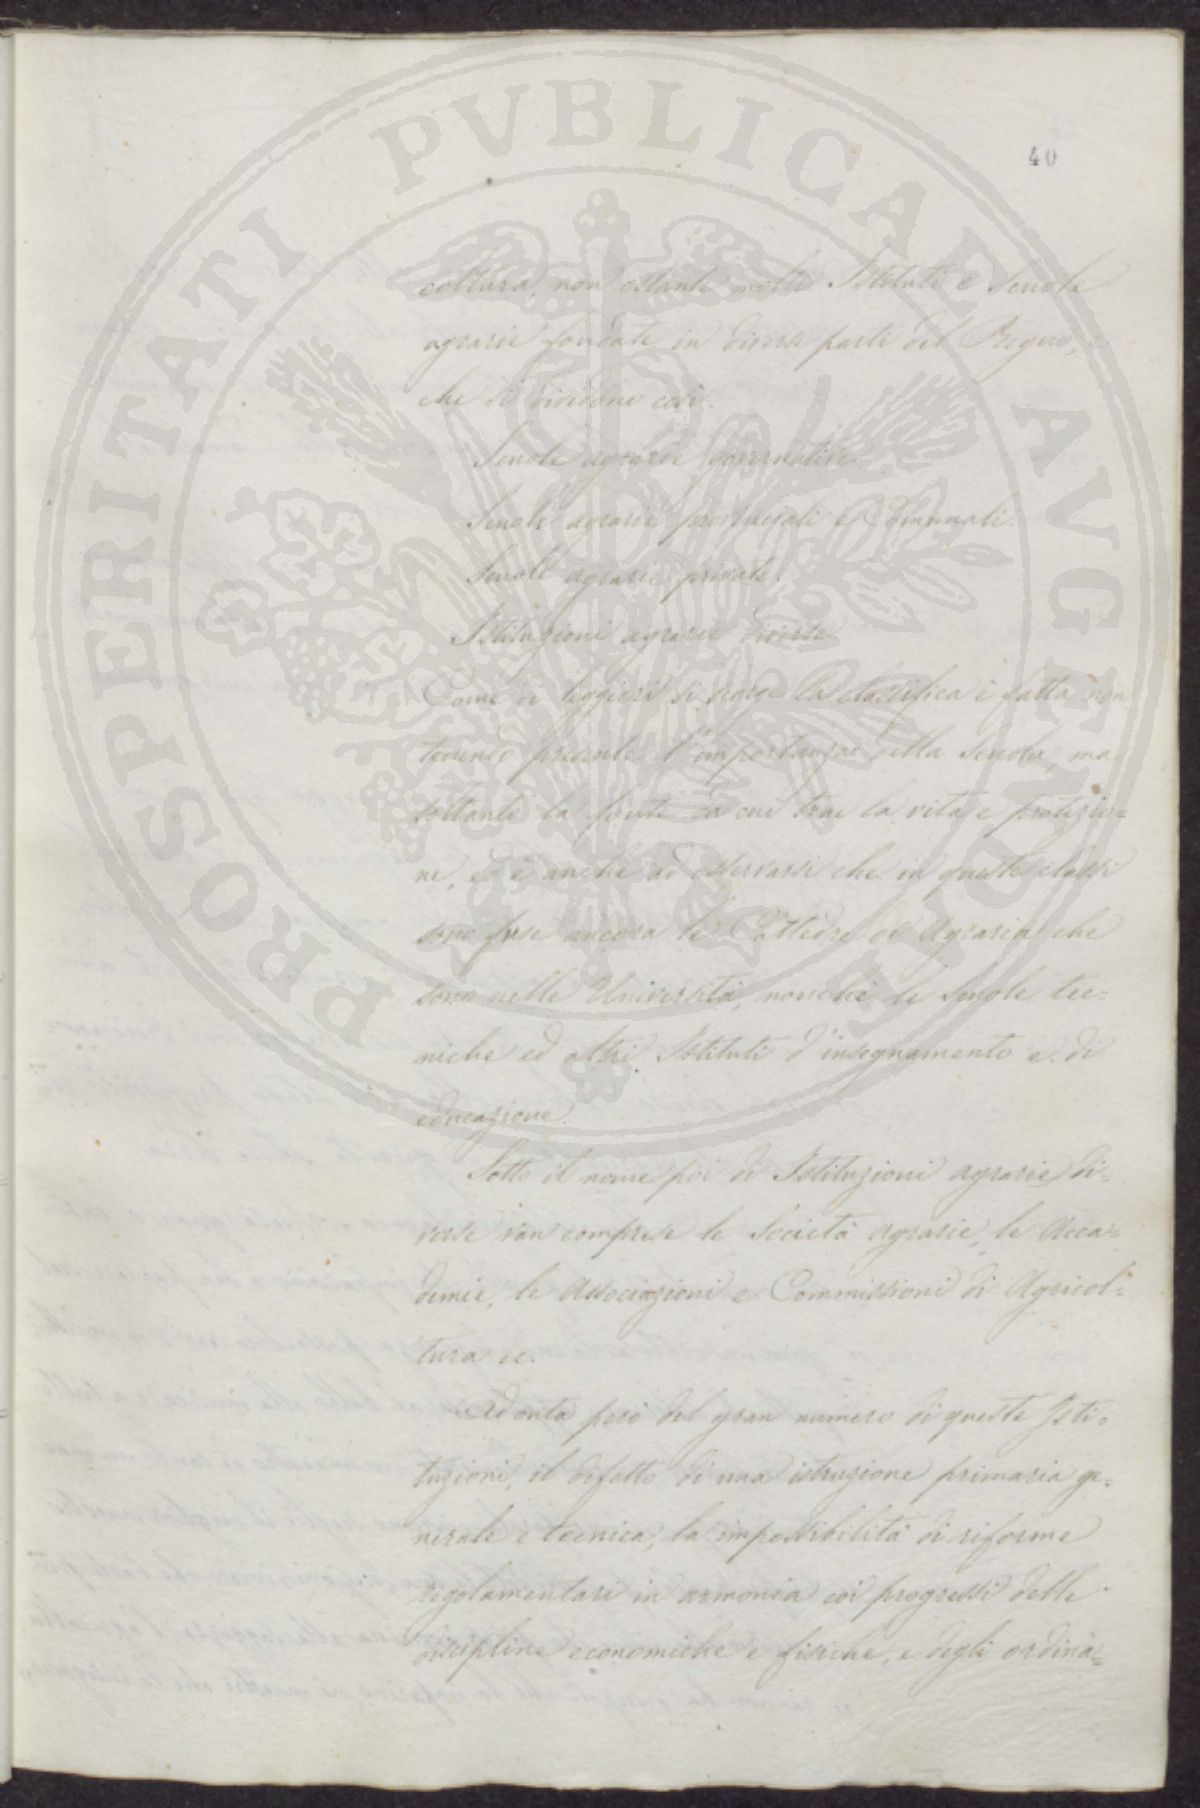 PROSPERITATI PVBLICAE AVGENDAE
40
coltura, non ostante molti Istituti e Scuole
agrarie fondate in diverse parti del Regno, e
che si dividono così.
Scuole agrarie governative.
Scuole agrarie provinciali e Comunali.
Scuole agrarie private.
Istituzioni agrarie diverse.
Come di leggieri si scorge la classifica è fatta non
tenendo presente l'importanza della Scuola, ma
soltanto la fonte da cui trae la vita e protezio=
ne, ed è anche ad osservarsi che in queste classi
sono fuse ancora le Cattedre di Agraria che
sono nelle Università, nonchè le Scuole tec=
niche ed altri Istituti d'insegnamento e di
educazione.
Sotto il nome poi di Istituzioni agrarie di=
verse van comprese le Società agrarie, le Acca=
demie, le Associazioni e Commissioni di Agricol=
tura ec.
Ad onta però del gran numero di queste Isti=
tuzioni, il difetto di una istruzione primaria ge=
nerale e tecnica, la impossibilità di riforme
regolamentari in armonia coi progressi delle
discipline economiche e fisiche, e degli ordina=